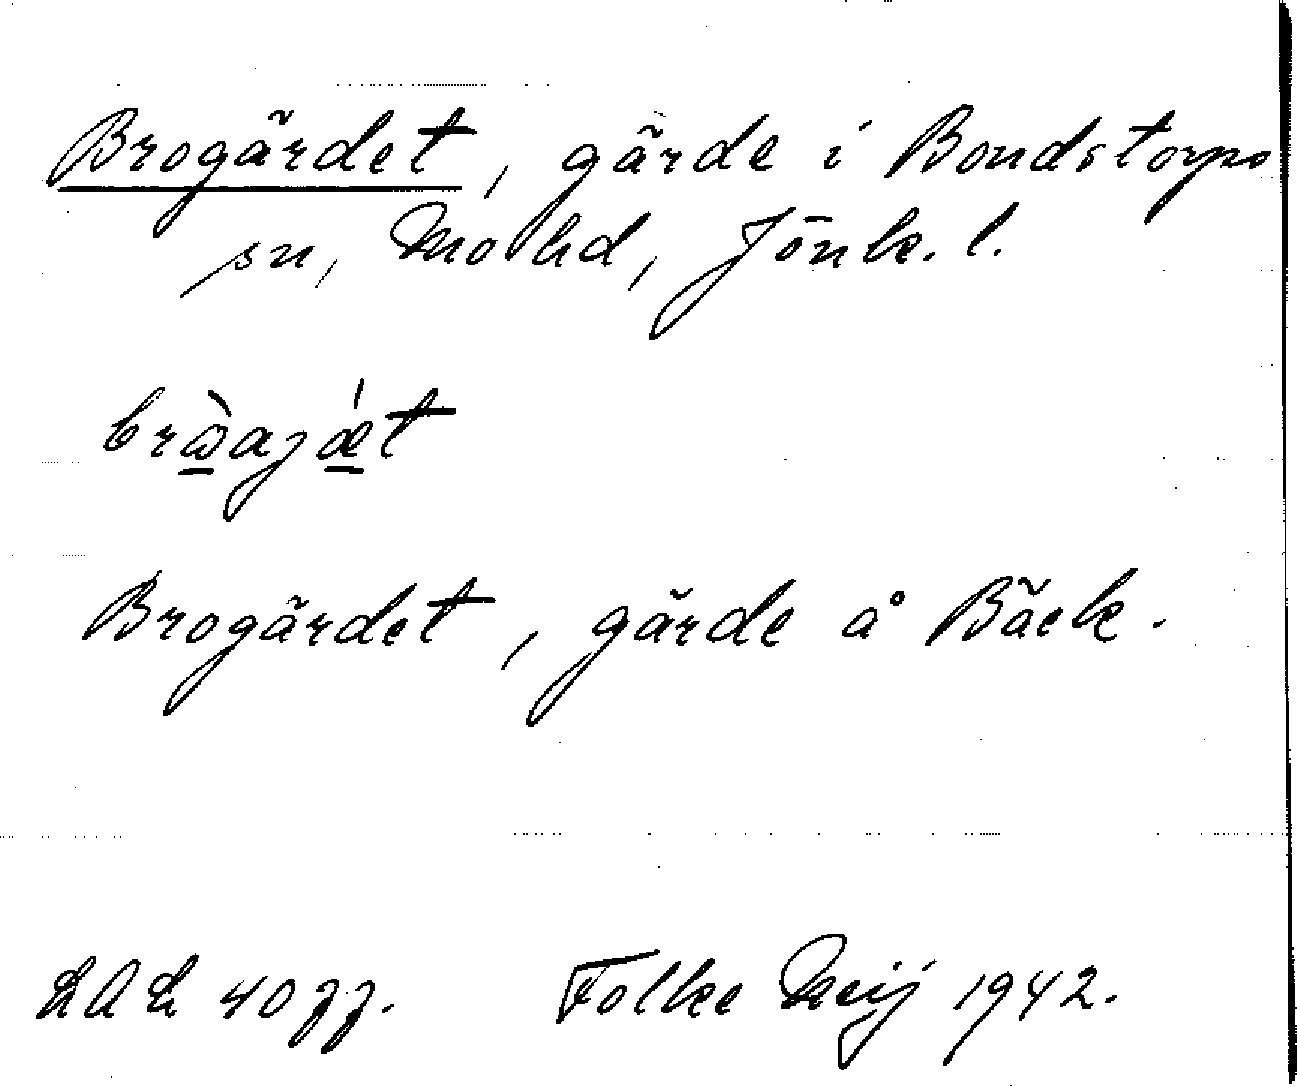 Brogärdet, gärde i Bondstorps
sn, Mo hd, Jönk. l.
brὼ̲ajǽ̲t
Brogärdet, gärde å Bäck.
LAL 40 ff. Folke Meij 1942.